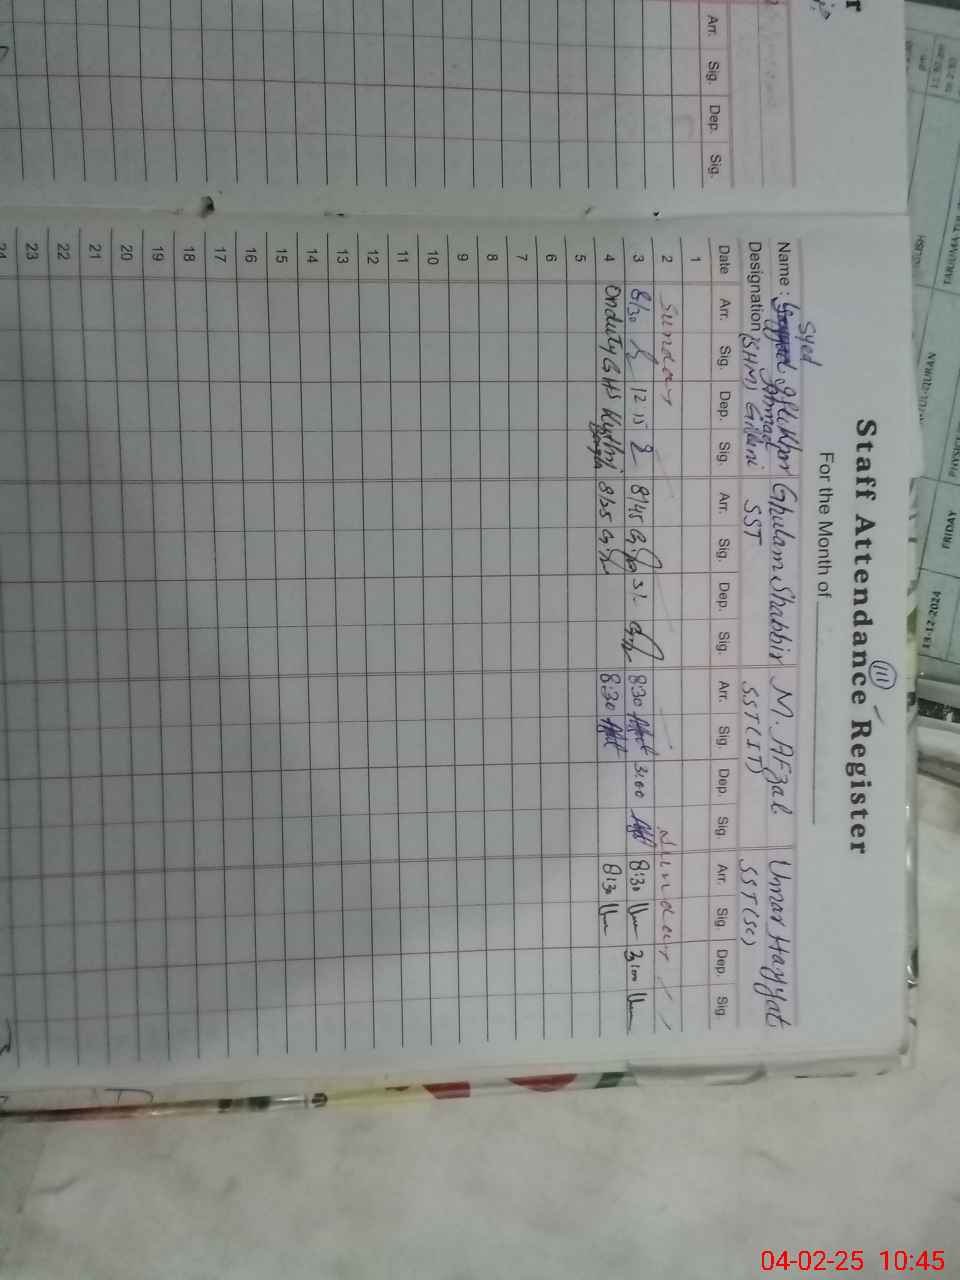 Staff Attendance Register
111
For the Month of
Syed
Name : Iftikhar Ghulam Shabbir M. Afzal Umar Hayyat
Ahmad
Designation (SHM) Gillani SST SST(IT) SST(SC)
Date Arr. Sig. Dep. Sig. Arr. Sig. Dep. Sig. Arr. Sig. Dep. Sig. Arr. Sig. Dep. Sig.
1
2 Sunday Sunday
3 8/30 12 15 8/45 3/- 8:30 3:00 8:30 3:00
4 On duty GHS 8/35 8:30 8:30
5
6
7
8
9
10
11
12
13
14
15
16
17
18
19
20
21
22
23
24
Arr. Sig. Dep. Sig.
FRIDAY
13-12-2024
04-02-25 10:45